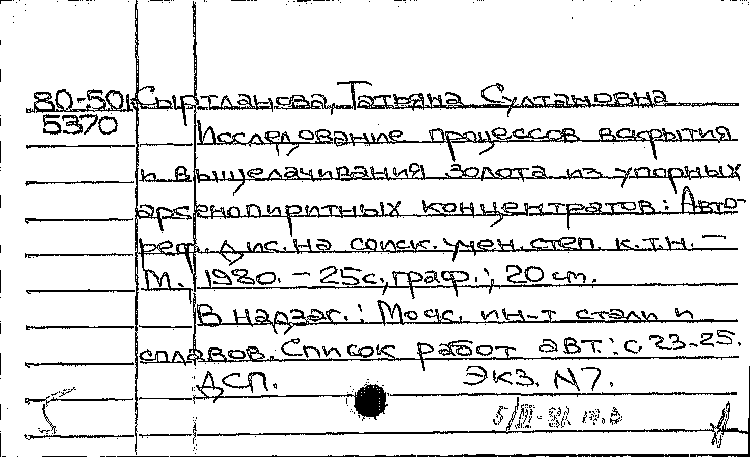 80-50к Сыртланова, Татьяна Султановна
5370 Исследование процессов вскрытия
и выщелачивания золота из упорных
арсенопиритных концентратов: Авто-
реф. дис. на соиск. учен. степ. к.т.н. –
М., 1980. – 25с., граф.; 20 см.
В надзаг.: Моск. ин-т стали и
сплавов. Список работ авт.: с. 23-25.
ДСП. ЭКЗ. N7.